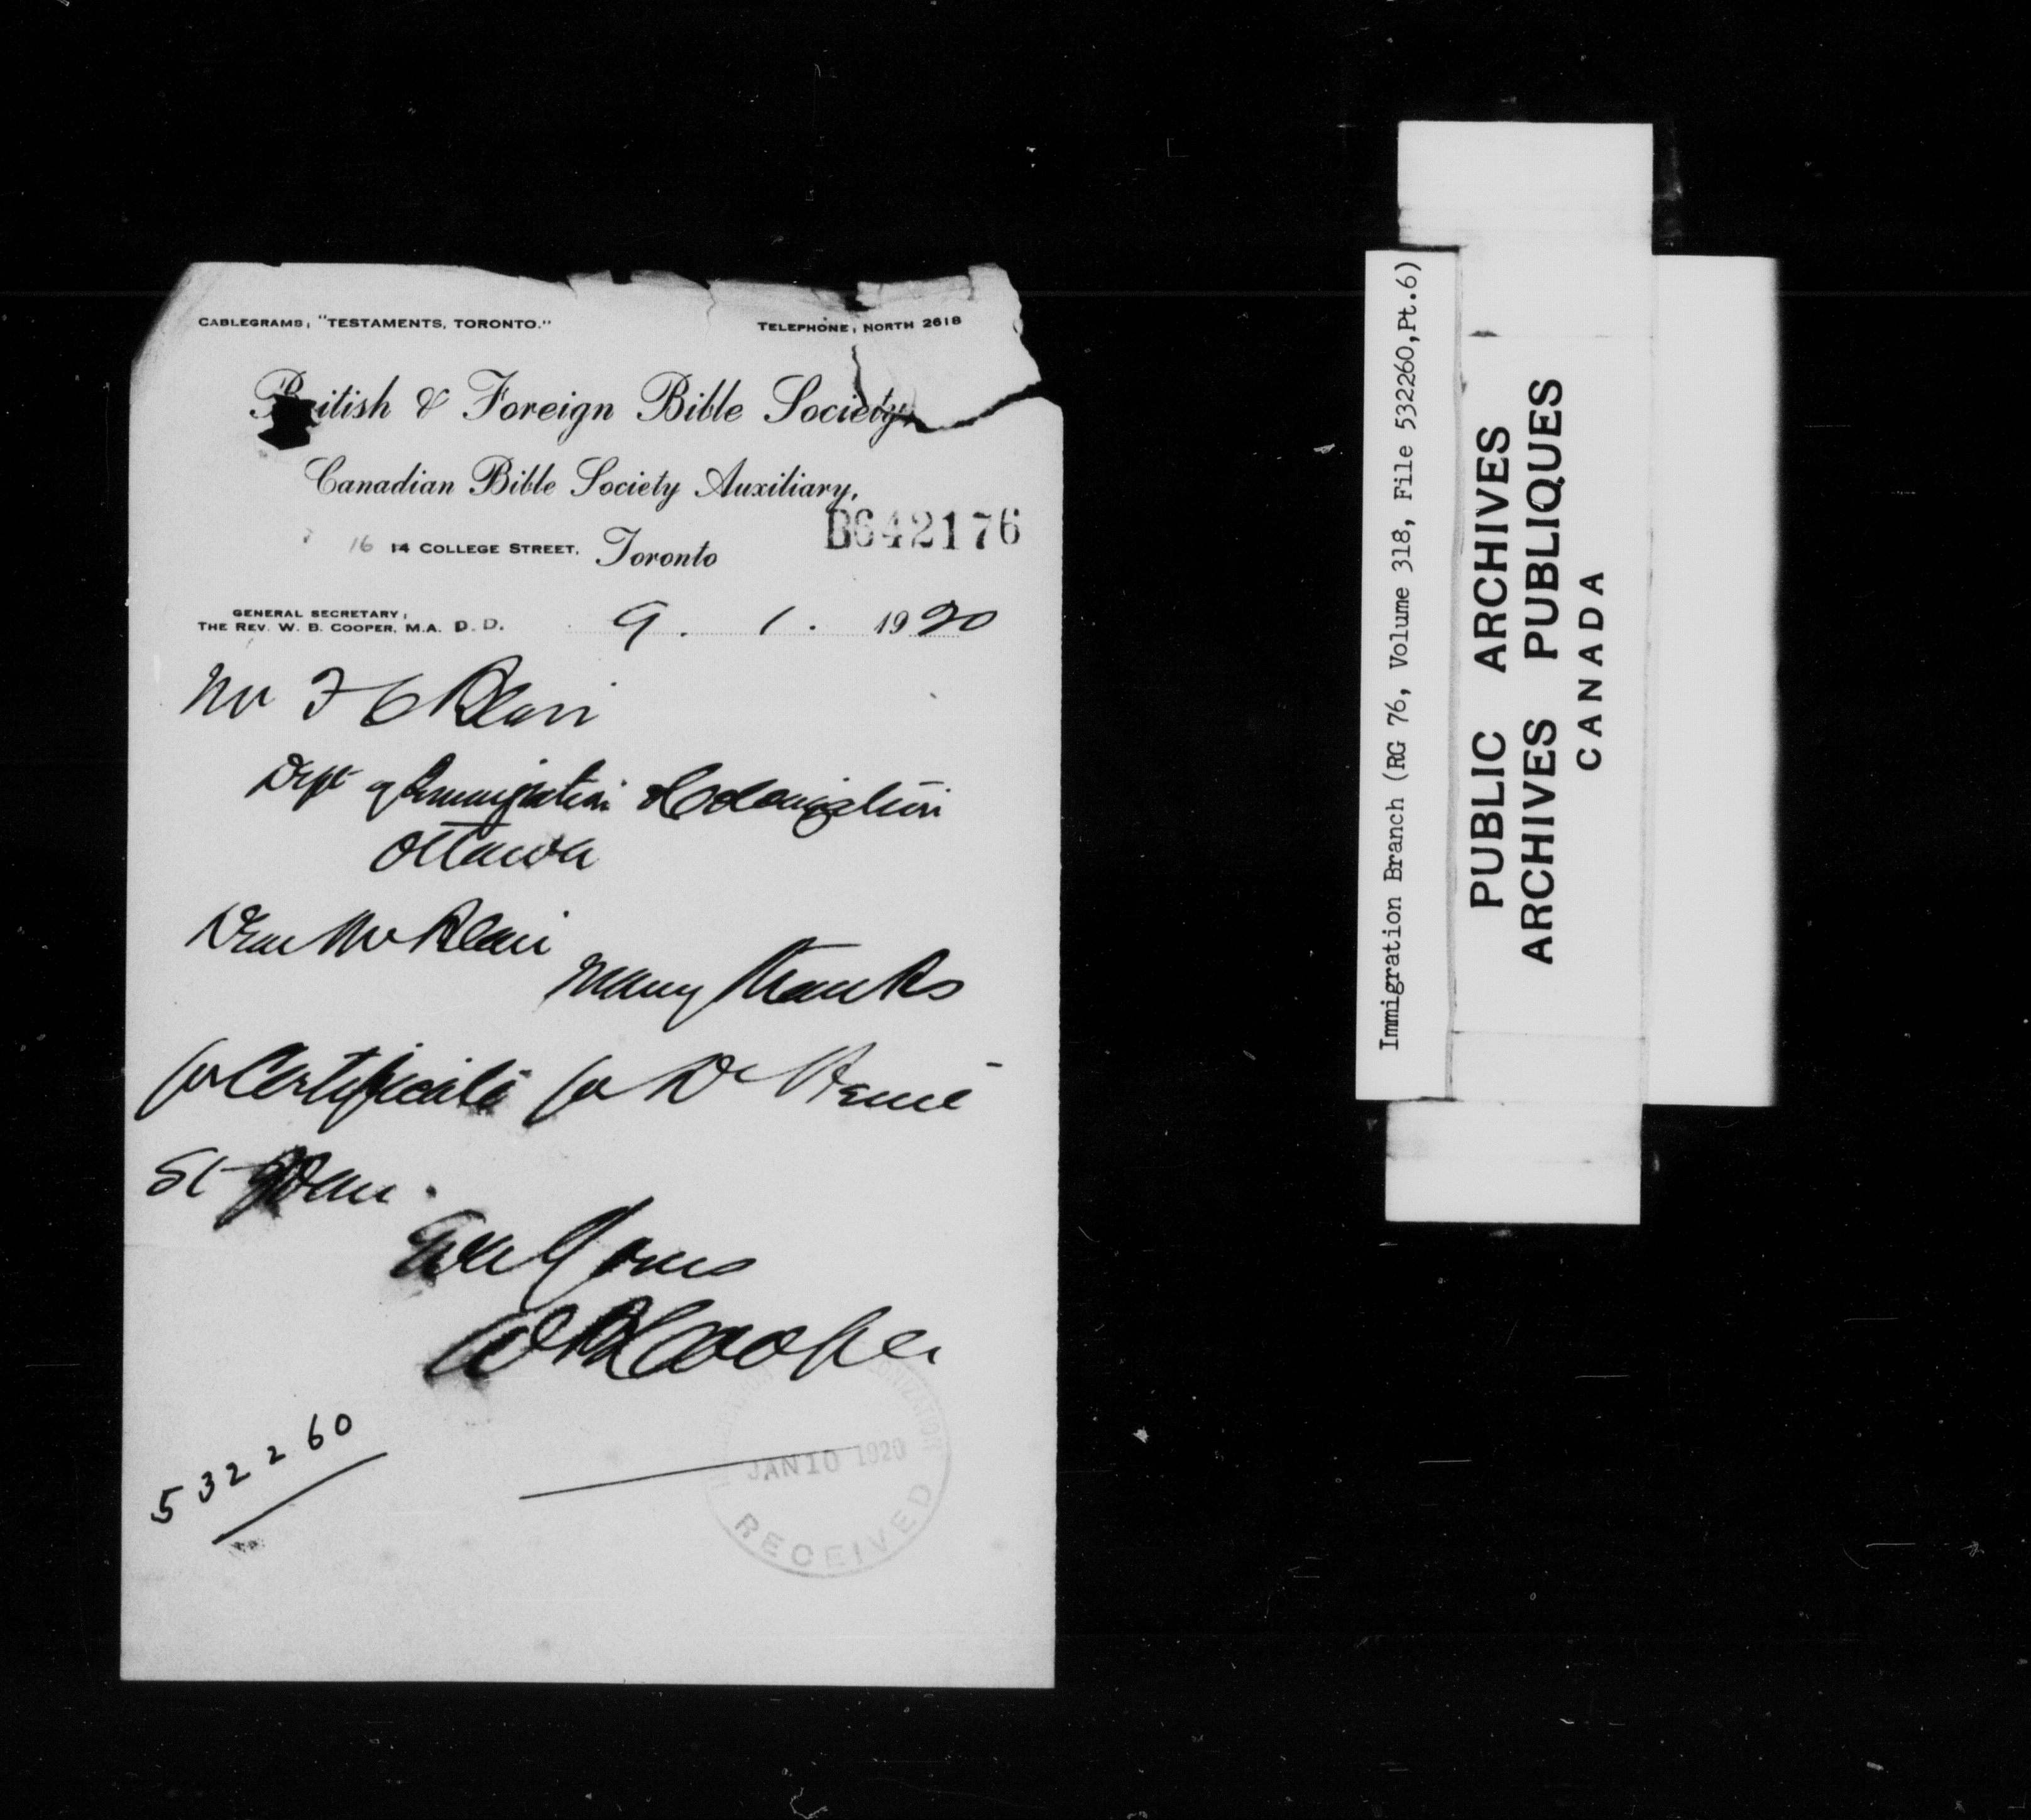 CABLEGRAMS, "TESTAMENTS, TORONTO."
TELEPHONE, NORTH 2618
British & Foreign Bible Society,
Canadian Bible Society Auxiliary,
B642176
16 14 COLLEGE STREET, Toronto
GENERAL SECRETARY,
THE REV. W. B. COOPER, M.A. D.D.
9. 1. 1920
Mr F C Blair
Dept of Immigration & Colonization
Ottawa
Dear Mr Blair
Many thanks
for Certificate for Dr
St
Yours
W B Cooper
532260
JAN 10 1920
RECEIVED
Immigration Branch (RG 76, Volume 318, File 532260,Pt.6)
PUBLIC ARCHIVES
ARCHIVES PUBLIQUES
CANADA